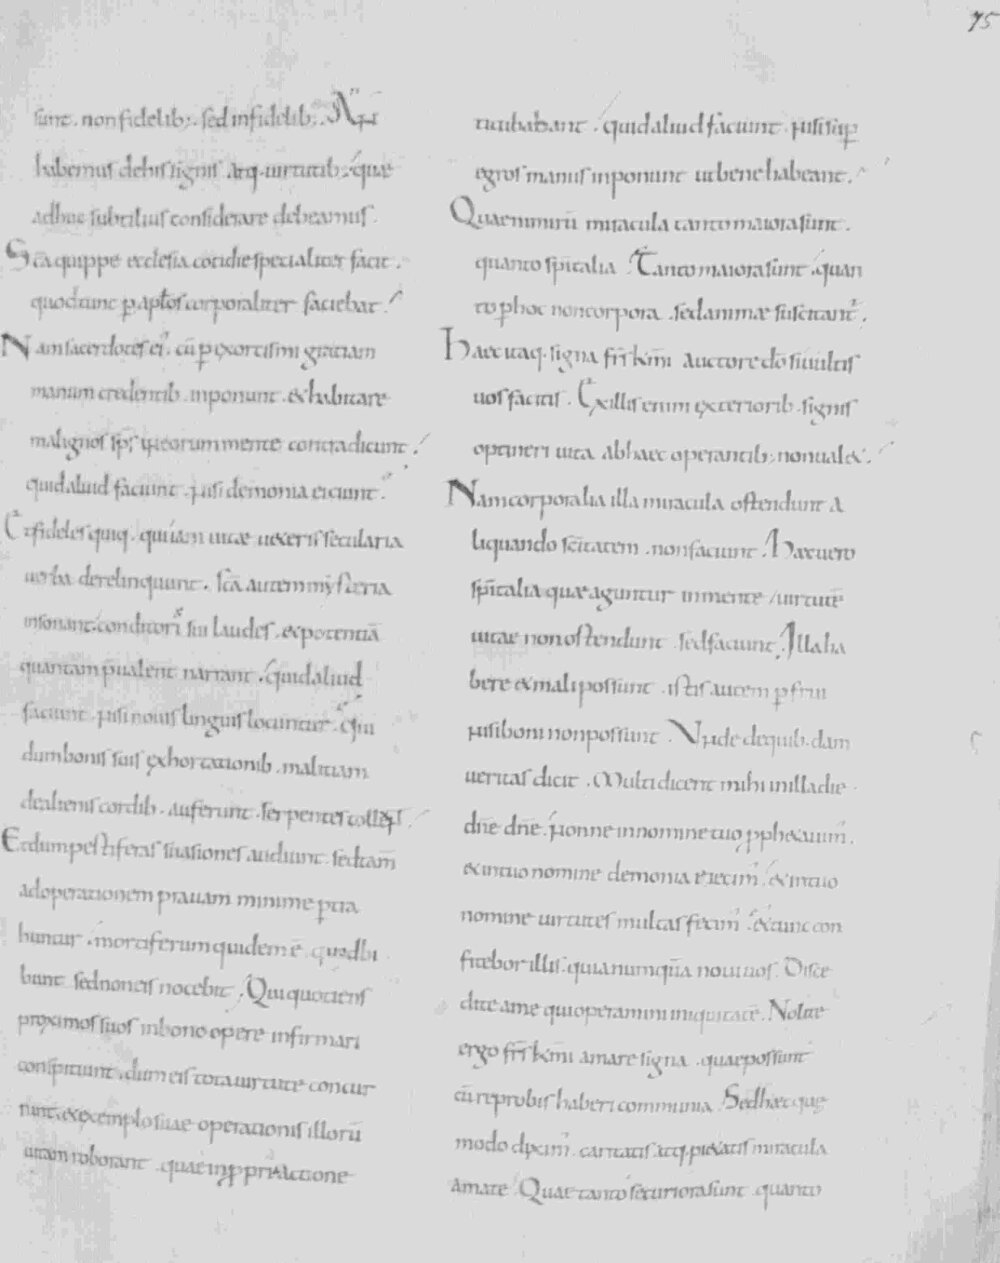 75
sunt. non fidelib; sed infidelib;. Nā
habemus de his signis atq. uirtutib; quae
adhuc subtilius considerare debeamus.
Scā quippe ecclesia cotidie specialiter facit.
quod tunc p aptos corporaliter faciebat.
Nam sacerdotes ei'. cū p exorcismi gratiam
manum credentib. inponunt. & habitare
malignos sps in eorum mente contradicunt.
quid aliud faciunt. nisi demonia eiciunt.
Et fideles quiq. qui iam uitae ueteris secularia
uerba derelinquunt. scā autem mysteria
insonant. conditoris sui laudes. & potentiā
quantam pualent narrant. quid aliud
faciunt. nisi nouis linguis locuntur. Qui
dum bonis suis exhortationib. malitiam
de alienis cordib. auferunt. serpentes tollunt.
Et dum pestiferas suasiones audiunt. sed tam̄
ad operationem prauam minime ptra
huntur. mortiferum quidem ē quod bi
bunt sed non eis nocebit. Qui quotiens
proximos suos in bono opere infirmari
conspiciunt. dum eis tota uirtute concur
runt. & exemplo suae operationis illorū
uitam roborant quae in pp̄ri actione
titubabant. quid aliud faciunt. nisi sup
egros manus inponunt ut bene habeant.
Quae nimirū miracula tanto maiora sunt.
quanto spītalia. Tanto maiora sunt. quan
to p hoc non corpora. sed animae suscitant'.
Haec itaq. signa frs kmi auctore dō si uultis
uos facitis. Ex illis enim exteriorib. signis
optineri uita ab haec operantib; non ual&.
Nam corporalia illa miracula ostendunt a
liquando scītatem. non faciunt. Haec uero
spītalia quae aguntur in mente / uirtutē
uitae non ostendunt sed faciunt. Illa ha
bere & mali possunt. istis autem p frui
nisi boni non possunt. Unde de quib. dam
ueritas dicit. Multi dicent mihi in illa die.
dn̄e dn̄e. nonne in nomine tuo pph&auim'.
& in tuo nomine demonia eiecim'. & in tuo
nomine uirtutes multas fecim'. & tunc con
fitebor illis. quia numquā noui uos. Disce
dite a me qui operamini iniquitatē. Nolite
ergo frs kmi amare signa. quae possunt
cū reprobis haberi communia. Sed haec quae
modo dixim'. caritatis atq. pietatis miracula
amate. Quae tanto securiora sunt quanto